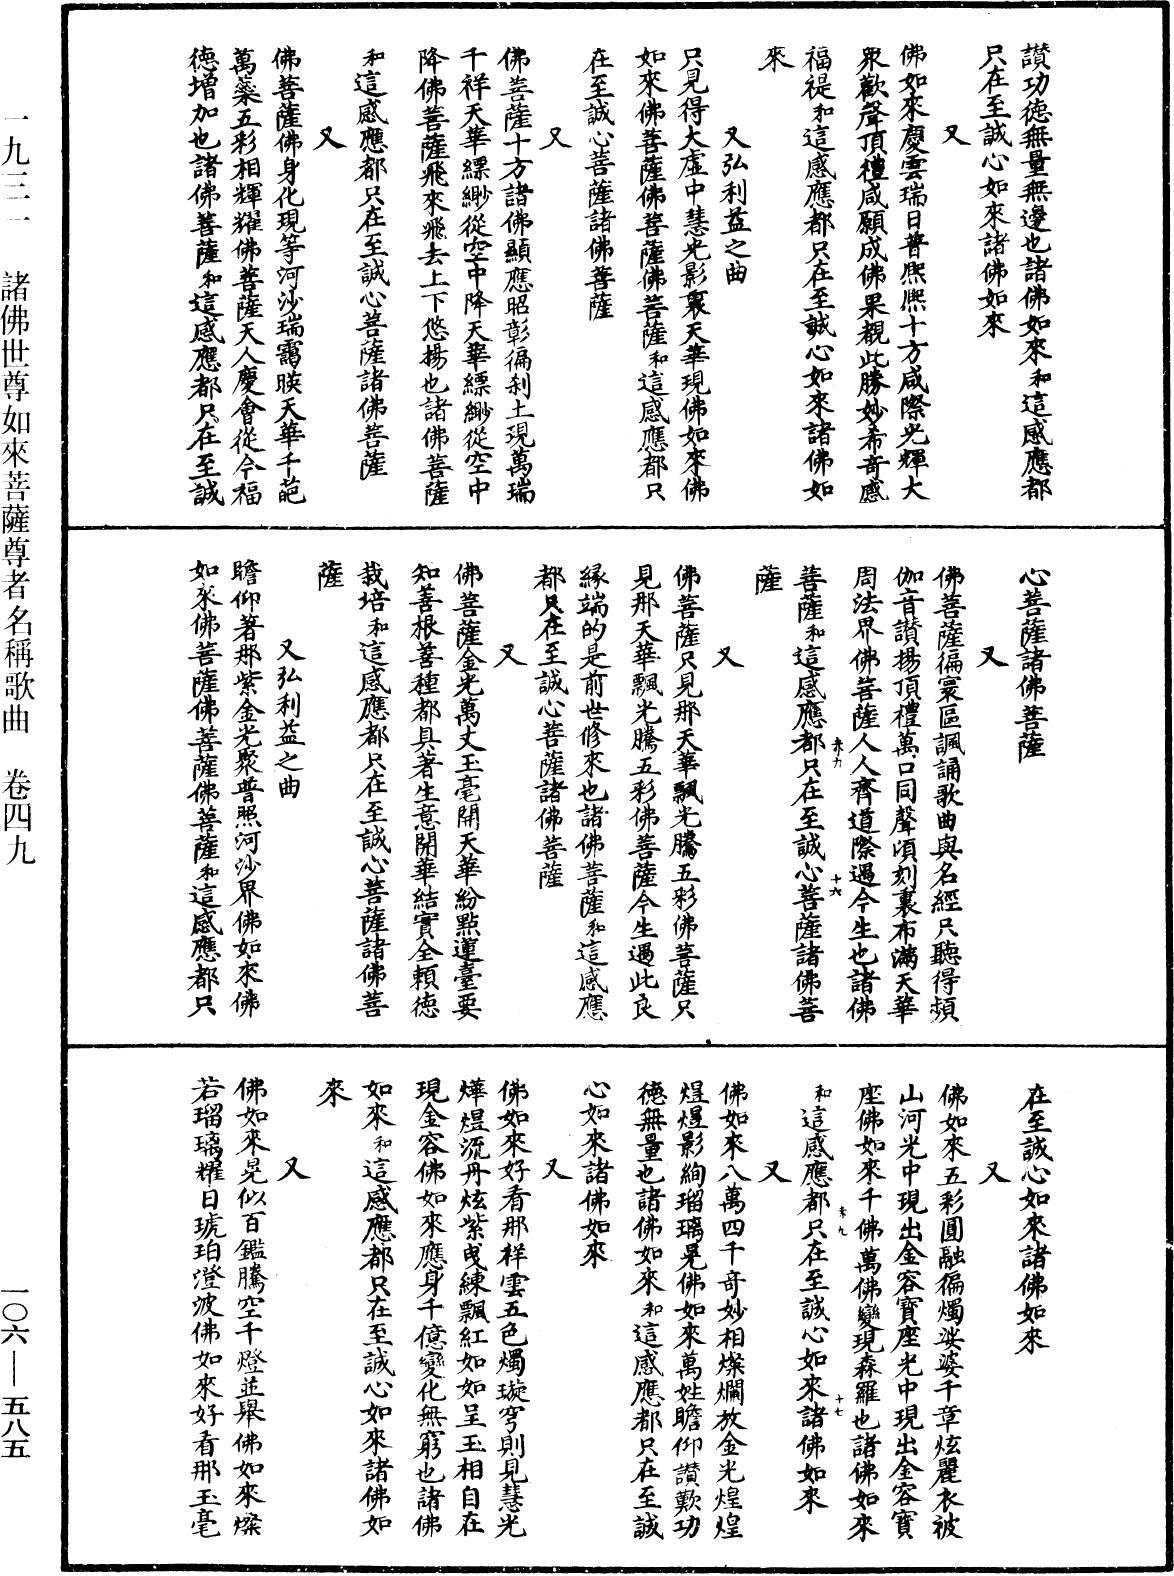 讃功徳無量無邊也諸佛如來和這感應都
只在至誠心如來諸佛如來
又
佛如來慶雲瑞日普熙熙十方咸際光輝大
衆歡聲頂禮咸願成佛果觀此勝妙希奇感
福禔和這感應都只在至誠心如來諸佛如
來
又弘利益之曲
只見得大虛中慧光影裏天華現佛如來佛
如來佛菩薩佛菩薩佛菩薩和這感應都只
在至誠心菩薩諸佛菩薩
又
佛菩薩十方諸佛顯應昭彰徧刹土現萬瑞
千祥天華縹緲從空中降天華縹緲從空中
降佛菩薩飛來飛去上下悠揚也諸佛菩薩
和這感應都只在至誠心菩薩諸佛菩薩
又
佛菩薩佛身化現等河沙瑞靄睒天華千葩
萬蘂五彩相輝耀佛菩薩天人慶會從今福
徳增加也諸佛菩薩和這感應都只在至誠
心菩薩諸佛菩薩
又
佛菩薩徧寰區諷誦歌曲與名經只聽得頻
伽音讃揚頂禮萬口同聲頃刻裏布滿天華
周法界佛菩薩人人齊道際遇今生也諸佛
菩薩和這感應都只在至誠心菩薩諸佛菩
薩
又
佛菩薩只見那天華飄光騰五彩佛菩薩只
見那天華飄光騰五彩佛菩薩今生遇此良
緣端的是前世修來也諸佛菩薩和這感應
都只在至誠心菩薩諸佛菩薩
又
佛菩薩金光萬丈玉毫開天華紛點蓮臺要
知善根善種都具著生意開華結實全賴徳
栽培和這感應都只在至誠心菩薩諸佛菩
薩
又弘利益之曲
瞻仰著那紫金光聚普照河沙界佛如來佛
如來佛菩薩佛菩薩佛菩薩和這感應都只
在至誠心如來諸佛如來
又
佛如來五彩圓融徧燭娑婆千章炫麗衣被
山河光中現出金容寶座光中現出金容寶
座佛如來千佛萬佛變現森羅也諸佛如來
和這感應都只在至誠心如來諸佛如來
又
佛如來八萬四千奇妙相燦爛放金光煌煌
煌煌影絢瑠璃晃佛如來萬姓瞻仰讃歎功
徳無量也諸佛如來和這感應都只在至誠
心如來諸佛如來
又
佛如來好看那祥雲五色燭璇穹則見慧光
燁煜流丹炫紫曳練飄紅如如呈玉相自在
現金容佛如來應身千億變化無窮也諸佛
如來和這感應都只在至誠心如來諸佛如
來
又
佛如來晃似百鑑騰空千燈並舉佛如來燦
若瑠璃耀日琥珀澄波佛如來好看那玉毫
十六
十七
一九三一 諸佛世尊如來菩薩尊者名稱歌曲 卷四九
一〇六—五八五